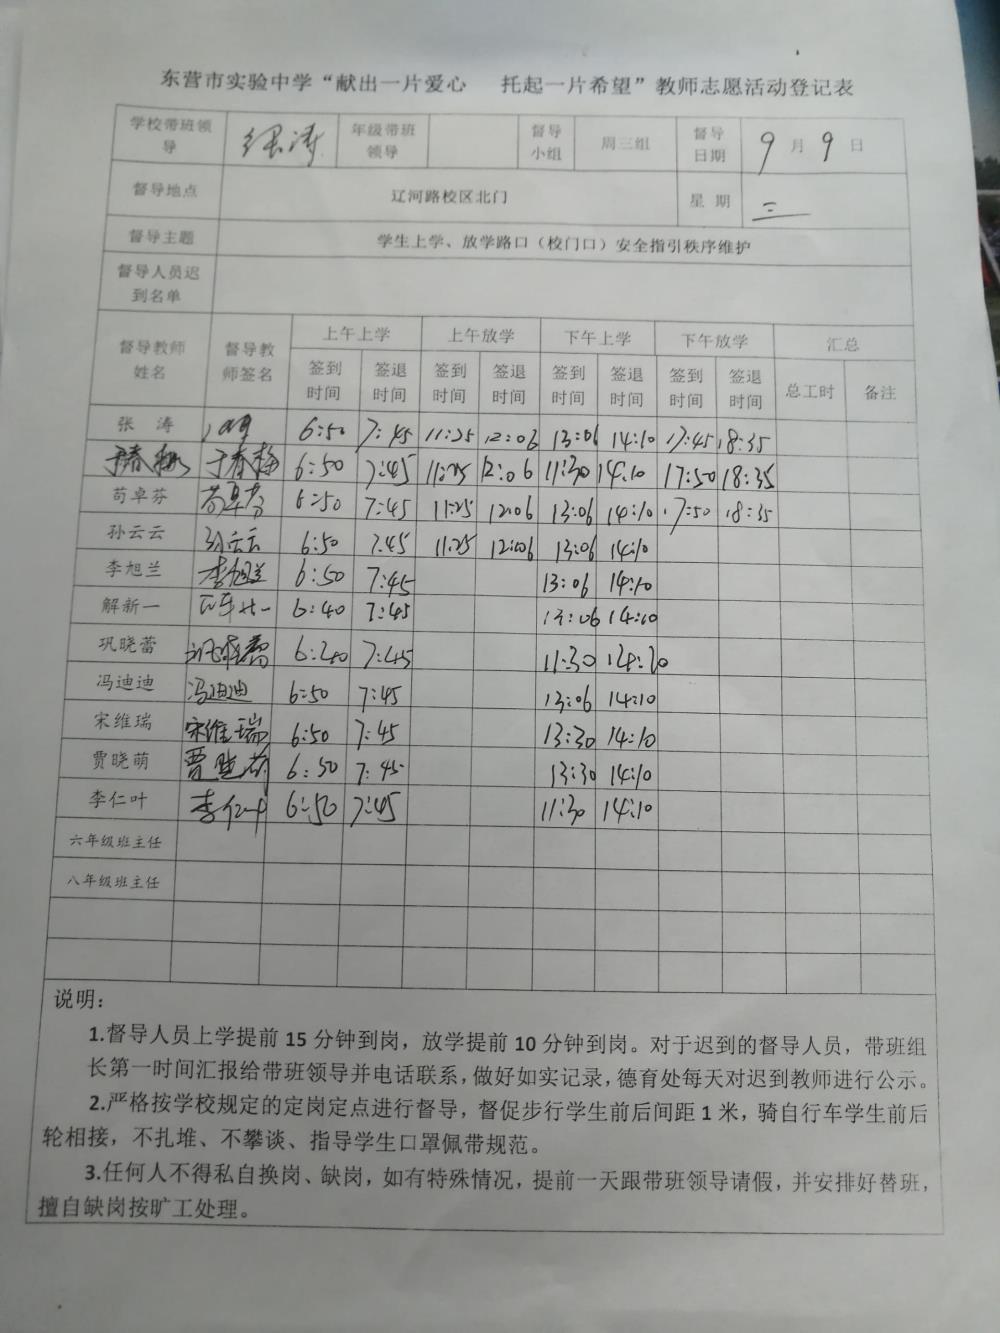 东营市实验中学“献出一片爱心 托起一片希望”教师志愿活动登记表
学校带班领导 张涛 年级带班领导 督导小组 周三组 督导日期 9月9日
督导地点 辽河路校区北门 星期 三
督导主题 学生上学、放学路口（校门口）安全指引秩序维护
督导人员迟到名单
督导教师姓名 督导教师签名 上午上学 上午放学 下午上学 下午放学 汇总
签到时间 签退时间 签到时间 签退时间 签到时间 签退时间 签到时间 签退时间 总工时 备注
张 涛 6:50 7:45 11:25 12:06 13:06 14:10 17:45 18:35
于春梅 于春梅 6:50 7:45 11:25 12:06 11:30 14:10 17:50 18:35
苟卓芬 苟卓芬 6:50 7:45 11:25 12:06 13:06 14:10 17:50 18:35
孙云云 孙云云 6:50 7:45 11:25 12:06 13:06 14:10
李旭兰 李旭兰 6:50 7:45 13:06 14:10
解新一 6:40 7:45 13:06 14:10
巩晓蕾 巩晓蕾 6:40 7:45 11:30 14:20
冯迪迪 冯迪迪 6:50 7:45 13:06 14:10
宋维瑞 宋维瑞 6:50 7:45 13:30 14:10
贾晓萌 贾晓萌 6:50 7:45 13:30 14:10
李仁叶 李仁叶 6:50 7:45 11:30 14:10
六年级班主任
八年级班主任
说明：
1.督导人员上学提前 15 分钟到岗，放学提前 10 分钟到岗。对于迟到的督导人员，带班组
长第一时间汇报给带班领导并电话联系，做好如实记录，德育处每天对迟到教师进行公示。
2.严格按学校规定的定岗定点进行督导，督促步行学生前后间距 1 米，骑自行车学生前后
轮相接，不扎堆、不攀谈、指导学生口罩佩带规范。
3.任何人不得私自换岗、缺岗，如有特殊情况，提前一天跟带班领导请假，并安排好替班，
擅自缺岗按旷工处理。